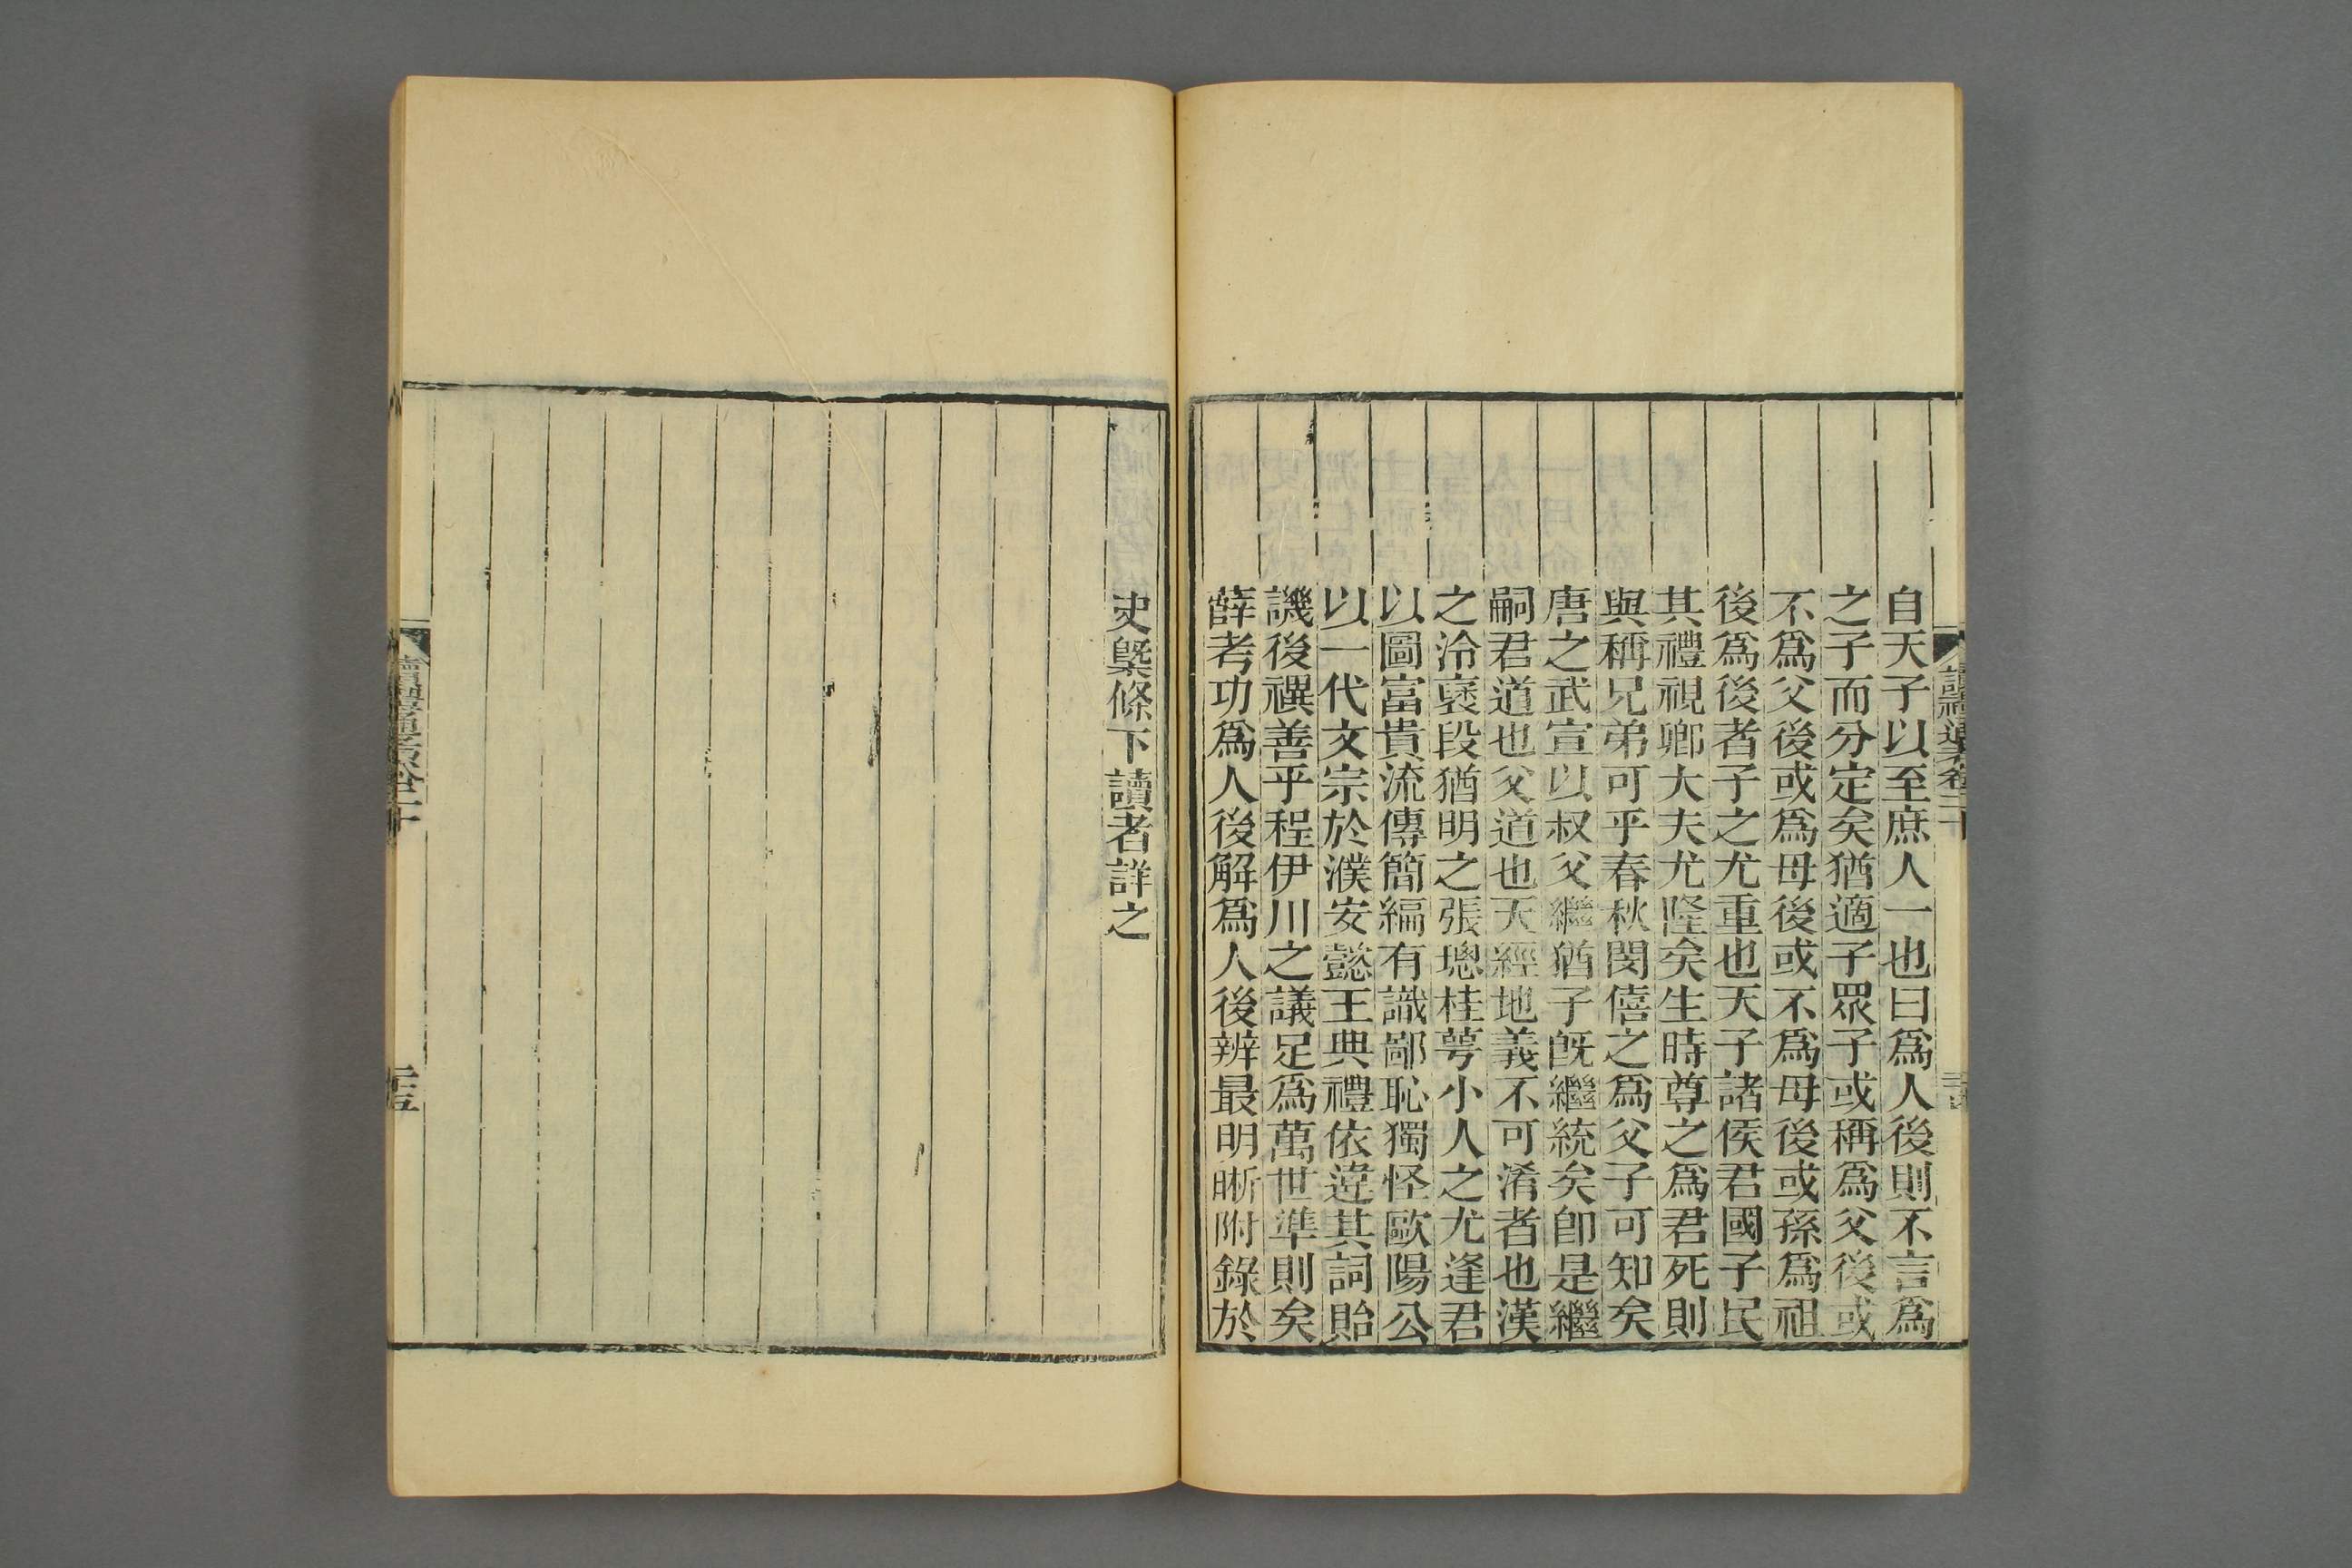 自天子以至庶人一也曰爲人後則不言爲
之子而分定矣猶適子眾子或稱爲父後或
不爲父後或爲母後或不爲母後或孫爲祖
後爲後者子之尤重也天子諸侯君國子民
其禮視卿大夫尤隆矣生時尊之爲君死則
與稱兄弟可乎春秋閔僖之爲父子可知矣
唐之武宣以叔父繼猶子旣繼統矣卽是繼
嗣君道也父道也天經地義不可淆者也漢
之泠襃段猶明之張璁桂萼小人之尤逢君
以圖富貴流傳簡編有識鄙恥獨怪歐陽公
以一代文宗於濮安懿王典禮依違其詞貽
譏後禩善乎程伊川之議足爲萬世準則矣
薛考功爲人後解爲人後辨最明晰附錄於
讀禮通考卷二十
史槩條下讀者詳之
讀禮通考卷二十
二十五